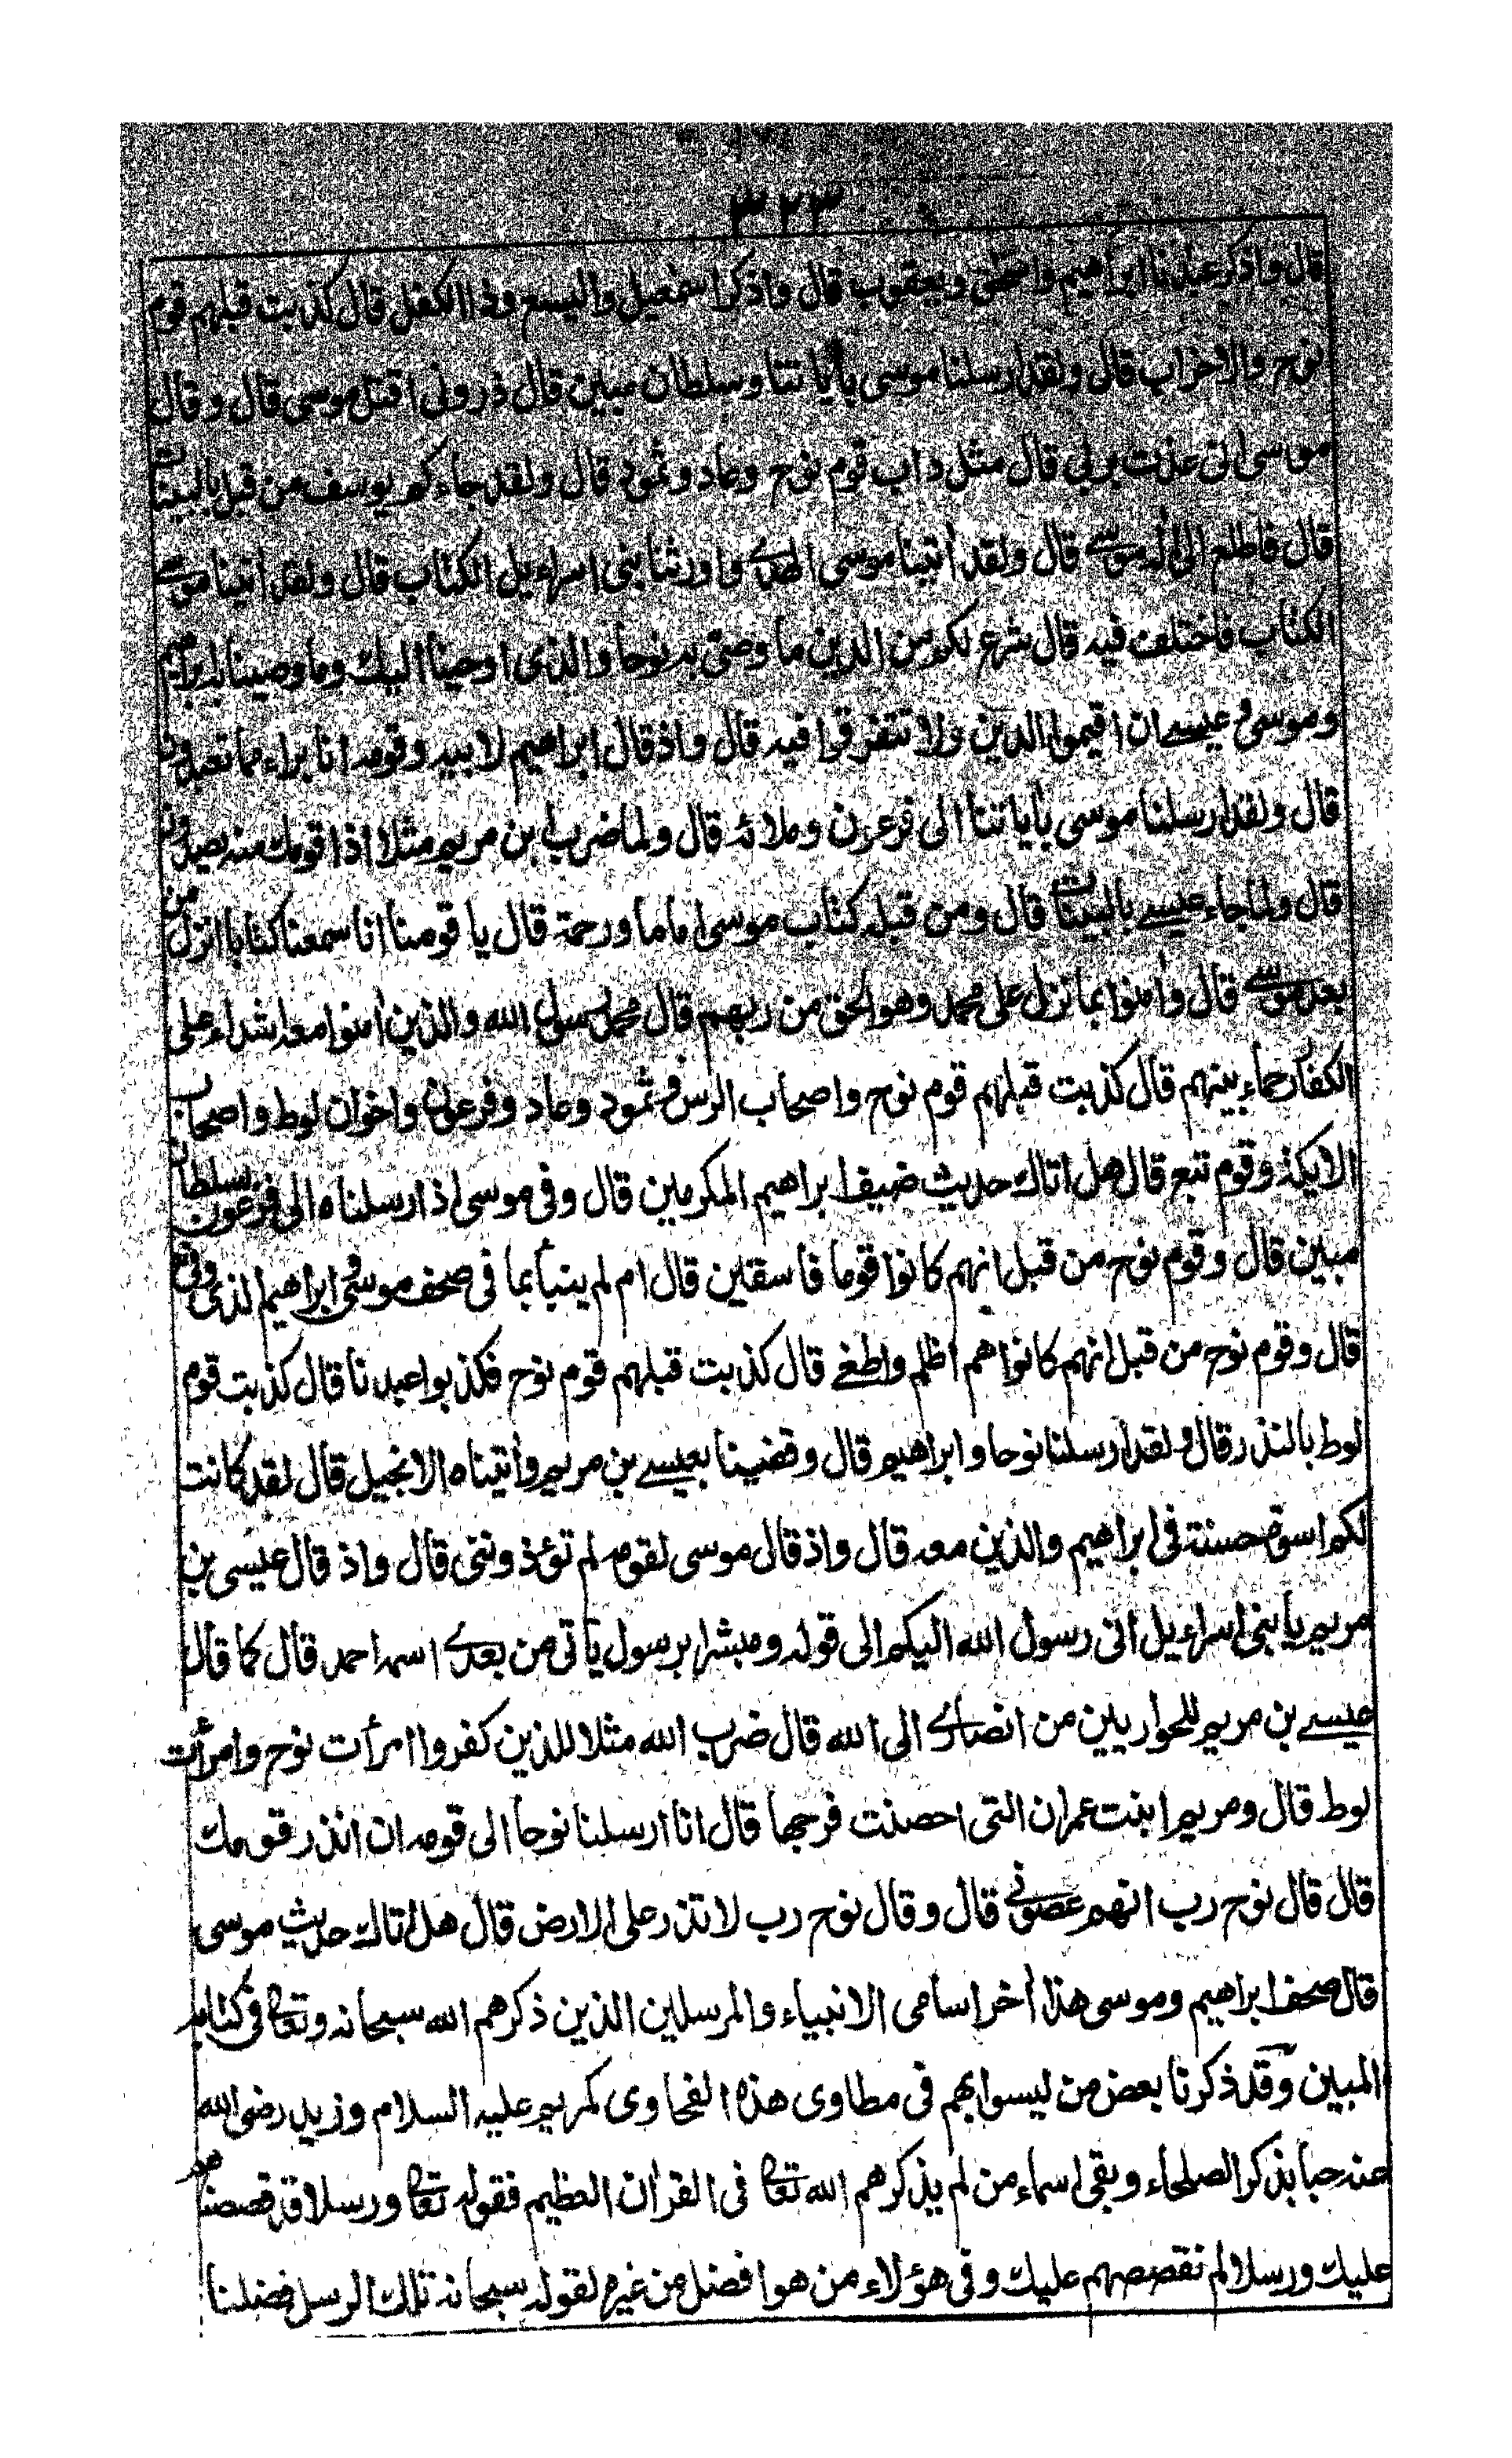 ٣٢٣
قال واذكر عبدنا ابراهيم واسحق ويعقوب قال واذكر اسمعيل واليسع وذا الكفل قال كذبت قبلهم قوم
نوح والاحزاب قال ولقد ارسلنا موسى بأياتنا وسلطان مبين قال ذرونى اقتل موسى قال وقال
موسى انى عذت بربى قال مثل داب قوم نوح وعاد وثمود قال ولقد جاءكم يوسف من قبل بالبينات
قال فاطلع الى اله موسى قال ولقد أتينا موسى الهدى واورثنا بنى اسراءيل الكتاب قال ولقد أتينا موسى
الكتاب فاختلف فيه قال شرع لكم من الدين ما وصى به نوحا والذى اوحينا اليك وما وصينا به ابراهيم
وموسى وعيسى ان اقيموا الدين ولا تتفرقوا فيه قال واذ قال ابراهيم لابيه وقومه انا براء مما تعبدون
قال ولقد ارسلنا موسى بأياتنا الى فرعون وملائه قال ولما ضرب ابن مريم مثلا اذا قومك منه يصدون
قال ولما جاء عيسى بالبينات قال ومن قبله كتاب موسى اماما ورحمة قال يا قومنا انا سمعنا كتابا انزل من
بعد موسى قال وأمنوا بما نزل على محمد وهو الحق من ربهم قال محمد رسول الله والذين أمنوا معه اشداء على
الكفار رحماء بينهم قال كذبت قبلهم قوم نوح واصحاب الرس وثمود وعاد وفرعون واخوان لوط واصحاب
الايكة وقوم تبع قال هل اتاك حديث ضيف ابراهيم المكرمين قال وفى موسى اذ ارسلناه الى فرعون بسلطان
مبين قال وقوم نوح من قبل انهم كانوا قوما فاسقين قال ام لم ينبأ بما فى صحف موسى وابراهيم الذى وفى
قال وقوم نوح من قبل انهم كانوا هم اظلم واطغى قال كذبت قبلهم قوم نوح فكذبوا عبدنا قال كذبت قوم
لوط بالنذر قال ولقد ارسلنا نوحا وابراهيم قال وقضينا بعيسى بن مريم وأتيناه الانجيل قال لقد كانت
لكم اسوة حسنة فى ابراهيم والذين معه قال واذ قال موسى لقومه لم تؤذوننى قال واذ قال عيسى بن
مريم يا بنى اسراءيل انى رسول الله اليكم الى قوله ومبشرا برسول يأتى من بعدى اسمه احمد قال كما قال
عيسى بن مريم للحواريين من انصارى الى الله قال ضرب الله مثلا للذين كفروا امرأت نوح وامرأت
لوط قال ومريم ابنت عمران التى احصنت فرجها قال انا ارسلنا نوحا الى قومه ان انذر قومك
قال قال نوح رب انهم عصونى قال وقال نوح رب لا تذر على الارض قال هل اتاك حديث موسى
قال صحف ابراهيم وموسى هذا أخر اسامى الانبياء والمرسلين الذين ذكرهم الله سبحانه وتعالى فى كتابه
المبين وقد ذكرنا بعض من ليسوا بهم فى مطاوى هذه الفحاوى كمريم عليه السلام وزيد رضى الله
عنه حبا بذكر الصلحاء وبقى اسماء من لم يذكرهم الله تعالى فى القرأن العظيم فقوله تعالى ورسلا قد قصصناهم
عليك ورسلا لم نقصصهم عليك وفى هؤلاء من هو افضل من غيره لقوله سبحانه تلك الرسل فضلنا